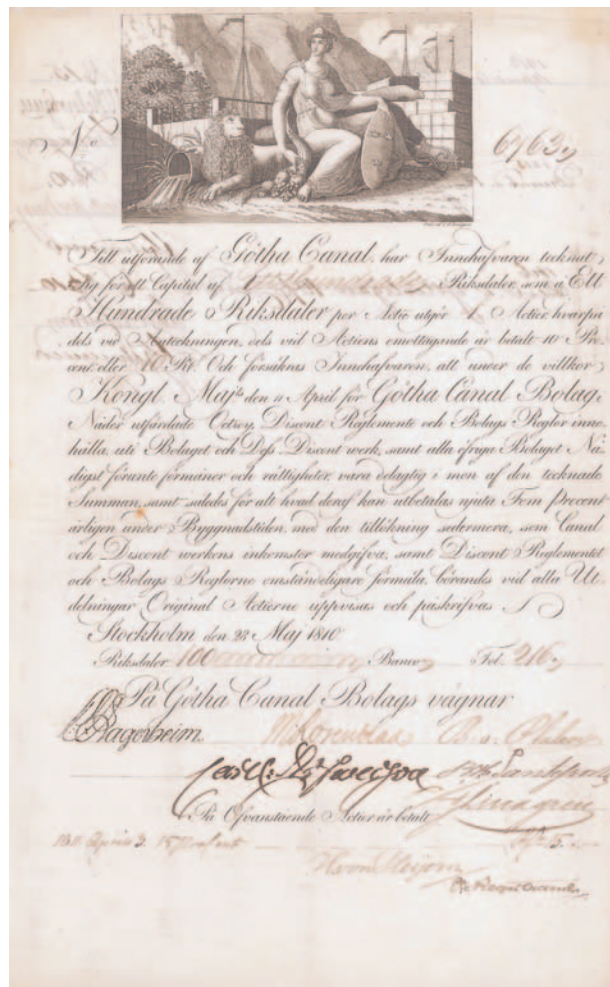 No 6763
Till utförande af Götha Canal har Innehafvaren tecknat
sig för ett Capital af Ett Hundrade Riksdaler, som á Ett
Hundrade Riksdaler per Actie utgör 1 Actier, hvarpå
dels vid Anteckningen, dels vid Actiens emottagande är betalt 10 Pr.
Cent, eller 10 Rd. Och försäkras Innehafvaren, att under de villkor
Kongl. Maj:t den 11 April för Götha Canal Bolag i
Nåder utfärdade Octroy, Discont Reglemente och Bolags Reglor inne-
hålla, uti Bolaget och Dess Discont werk, samt alla öfriga Bolaget Nå-
digst förunte förmåner och rättigheter, vara delagtig i mon af den tecknade
Summan, samt således för alt hvad deraf kan utbetalas njuta Fem Procent
årligen under Byggnadstiden, med den tillökning sedermera, som Canal
och Discont werkens inkomster medgifva, samt Discont Reglementet
och Bolags Reglorne omständeligare förmäla, börandes vid alla Ut-
delningar Original Actierne uppvisas och påskrifvas
Stockholm den 23 Maj 1810
Riksdaler 100 Banco Fol. 216
På Götha Canal Bolags vägnar
Lagerheim. B. v. Platen
På Ofvanstående Actier är betalt
1811 April 3